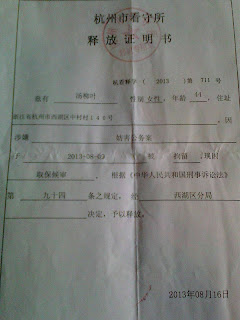 杭州市看守所
释放证明书
杭看释字 ( 2013 ) 第 711 号
兹有 汤 叶 性别 女性 ，年龄 44 ，住址
浙江省杭州市西湖区 村 146号 ，因
涉嫌 妨害公务案
2013-08-03 被 拘留 ，现因
取保候审 ，根据《中华人民共和国刑事诉讼法》
第 九十四 条之规定，经 西湖区分局
决定，予以释放。
2013年08月16日